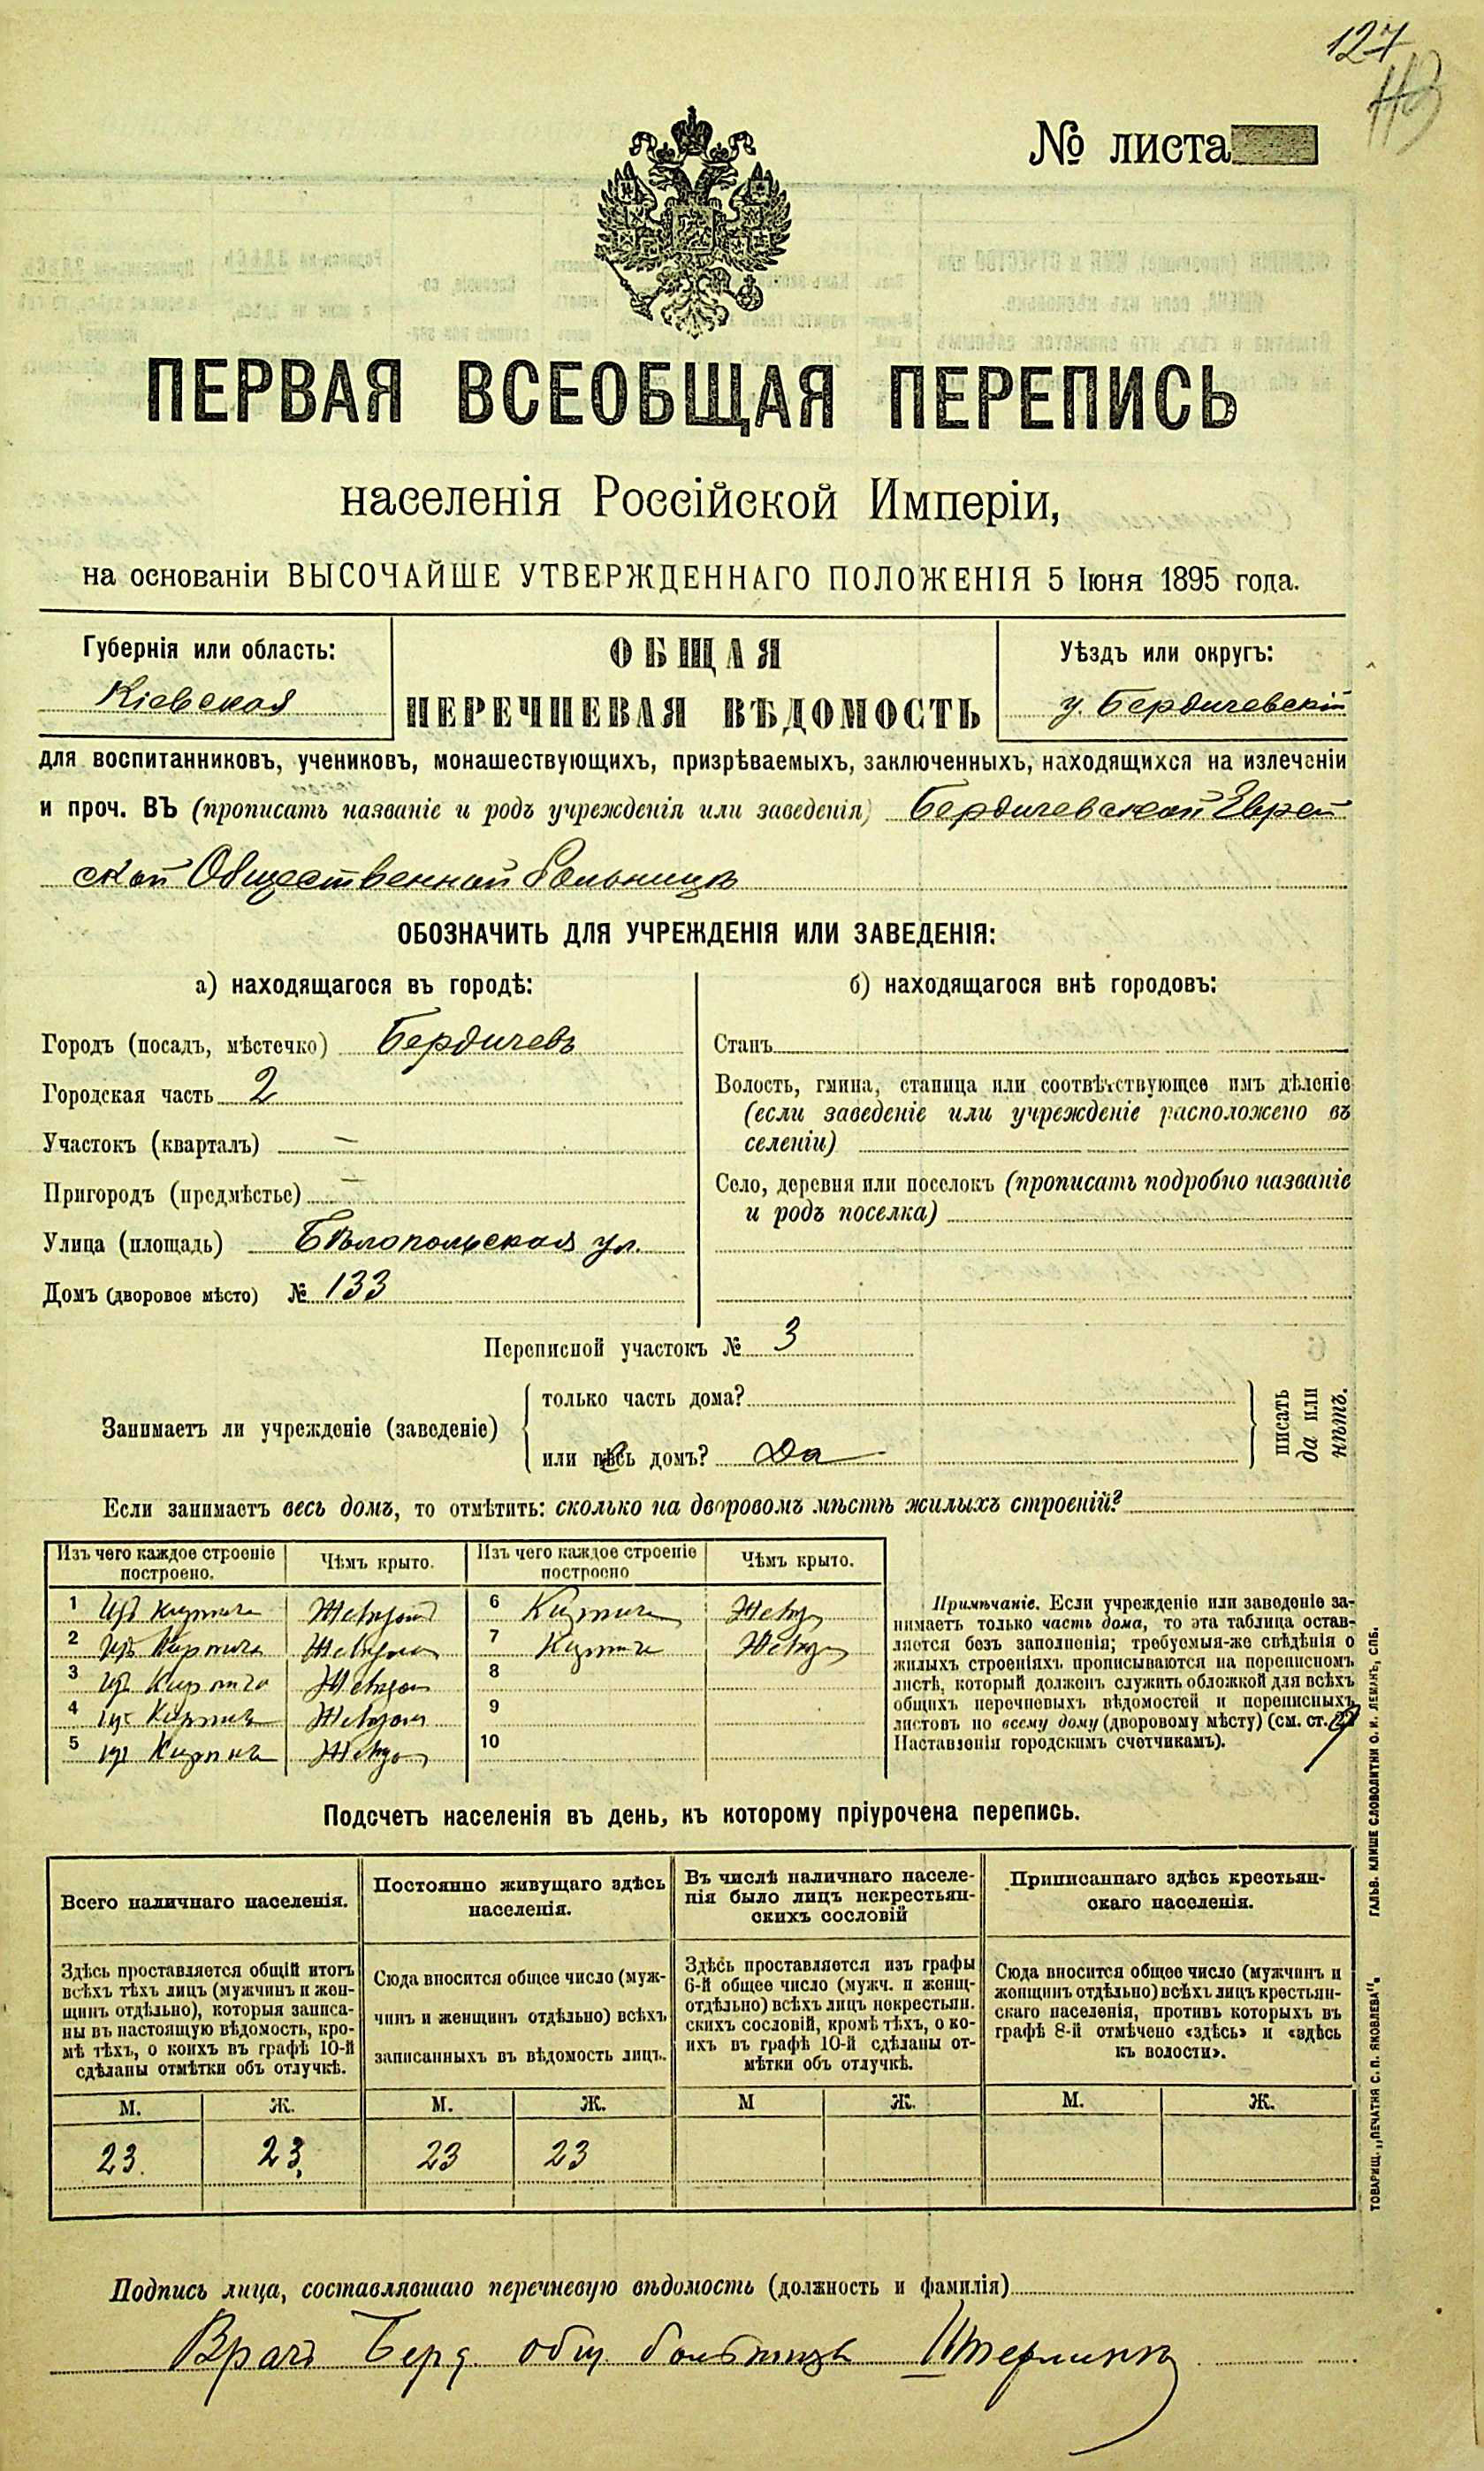 127
№ листа
ПЕРВАЯ ВСЕОБЩАЯ ПЕРЕПИСЬ
населенія Россійской Имперіи,
на основаніи ВЫСОЧАЙШЕ УТВЕРЖДЕННАГО ПОЛОЖЕНІЯ 5 Іюня 1895 года.
Губернія или область:
Кіевская
ОБЩАЯ
ПЕРЕЧНЕВАЯ ВѢДОМОСТЬ
Уѣздъ или округъ:
у. Бердичевскій
для воспитанниковъ, учениковъ, монашествующихъ, призрѣваемыхъ, заключенныхъ, находящихся на излеченіи
и проч. ВЪ (прописать названіе и родъ учрежденія или заведенія) Бердичевской Еврей
ской Общественной больницѣ
ОБОЗНАЧИТЬ ДЛЯ УЧРЕЖДЕНІЯ ИЛИ ЗАВЕДЕНІЯ:
а) находящагося въ городѣ:
Городъ (посадъ, мѣстечко) Бердичевъ
Городская часть 2
Участокъ (кварталъ) —
Пригородъ (предмѣстье) —
Улица (площадь) Бѣлопольская ул.
Домъ (дворовое мѣсто) № 133
б) находящагося внѣ городовъ:
Станъ
Волость, гмина, станица или соотвѣтствующее имъ дѣленіе
(если заведеніе или учрежденіе расположено въ
селеніи)
Село, деревня или поселокъ (прописать подробно названіе
и родъ поселка)
Переписной участокъ № 3
Занимаетъ ли учрежденіе (заведеніе)
только часть дома?
или весь домъ? Да
писать
да или
нѣтъ.
Если занимаетъ весь домъ, то отмѣтить: сколько на дворовомъ мѣстѣ жилыхъ строеній?
Изъ чего каждое строеніе построено. Чѣмъ крыто. Изъ чего каждое строеніе построено Чѣмъ крыто.
1 Изъ кирпича 6 Кирпича
2 Изъ Кирпича 7 Кирпича
3 изъ Кирпича 8
4 Кирпича 9
5 Кирпича 10
Примѣчаніе. Если учрежденіе или заведеніе за-
нимаетъ только часть дома, то эта таблица остав-
ляется безъ заполненія; требуемыя-же свѣдѣнія о
жилыхъ строеніяхъ прописываются на переписномъ
листѣ, который долженъ служить обложкой для всѣхъ
общихъ перечневыхъ вѣдомостей и переписныхъ
листовъ по всему дому (дворовому мѣсту) (см. ст. 27
Наставленія городскимъ счетчикамъ).
Подсчетъ населенія въ день, къ которому пріурочена перепись.
Всего наличнаго населенія.
Здѣсь проставляется общій итогъ
всѣхъ тѣхъ лицъ (мужчинъ и жен-
щинъ отдѣльно), которыя записа-
ны въ настоящую вѣдомость, кро-
мѣ тѣхъ, о коихъ въ графѣ 10-й
сдѣланы отмѣтки объ отлучкѣ.
Постоянно живущаго здѣсь
населенія.
Сюда вносится общее число (муж-
чинъ и женщинъ отдѣльно) всѣхъ
записанныхъ въ вѣдомость лицъ.
Въ числѣ наличнаго населе-
нія было лицъ некрестьян-
скихъ сословій
Здѣсь проставляется изъ графы
6-й общее число (мужч. и женщ.
отдѣльно) всѣхъ лицъ некрестьян.
скихъ сословій, кромѣ тѣхъ, о ко-
ихъ въ графѣ 10-й сдѣланы от-
мѣтки объ отлучкѣ.
Приписаннаго здѣсь крестьян-
скаго населенія.
Сюда вносится общее число (мужчинъ и
женщинъ отдѣльно) всѣхъ лицъ крестьян-
скаго населенія, противъ которыхъ въ
графѣ 8-й отмѣчено «здѣсь» и «здѣсь
къ волости».
М. Ж. М. Ж. М Ж. М. Ж.
23. 23. 23 23
Подпись лица, составлявшаго перечневую вѣдомость (должность и фамилія)
Врачъ Берд. общ. больницы
ТОВАРИЩ. „ПЕЧАТНЯ С. П. ЯКОВЛЕВА“. ГАЛЬВ. КЛИШЕ СЛОВОЛИТНИ О. И. ЛЕМАНЪ, СПБ.